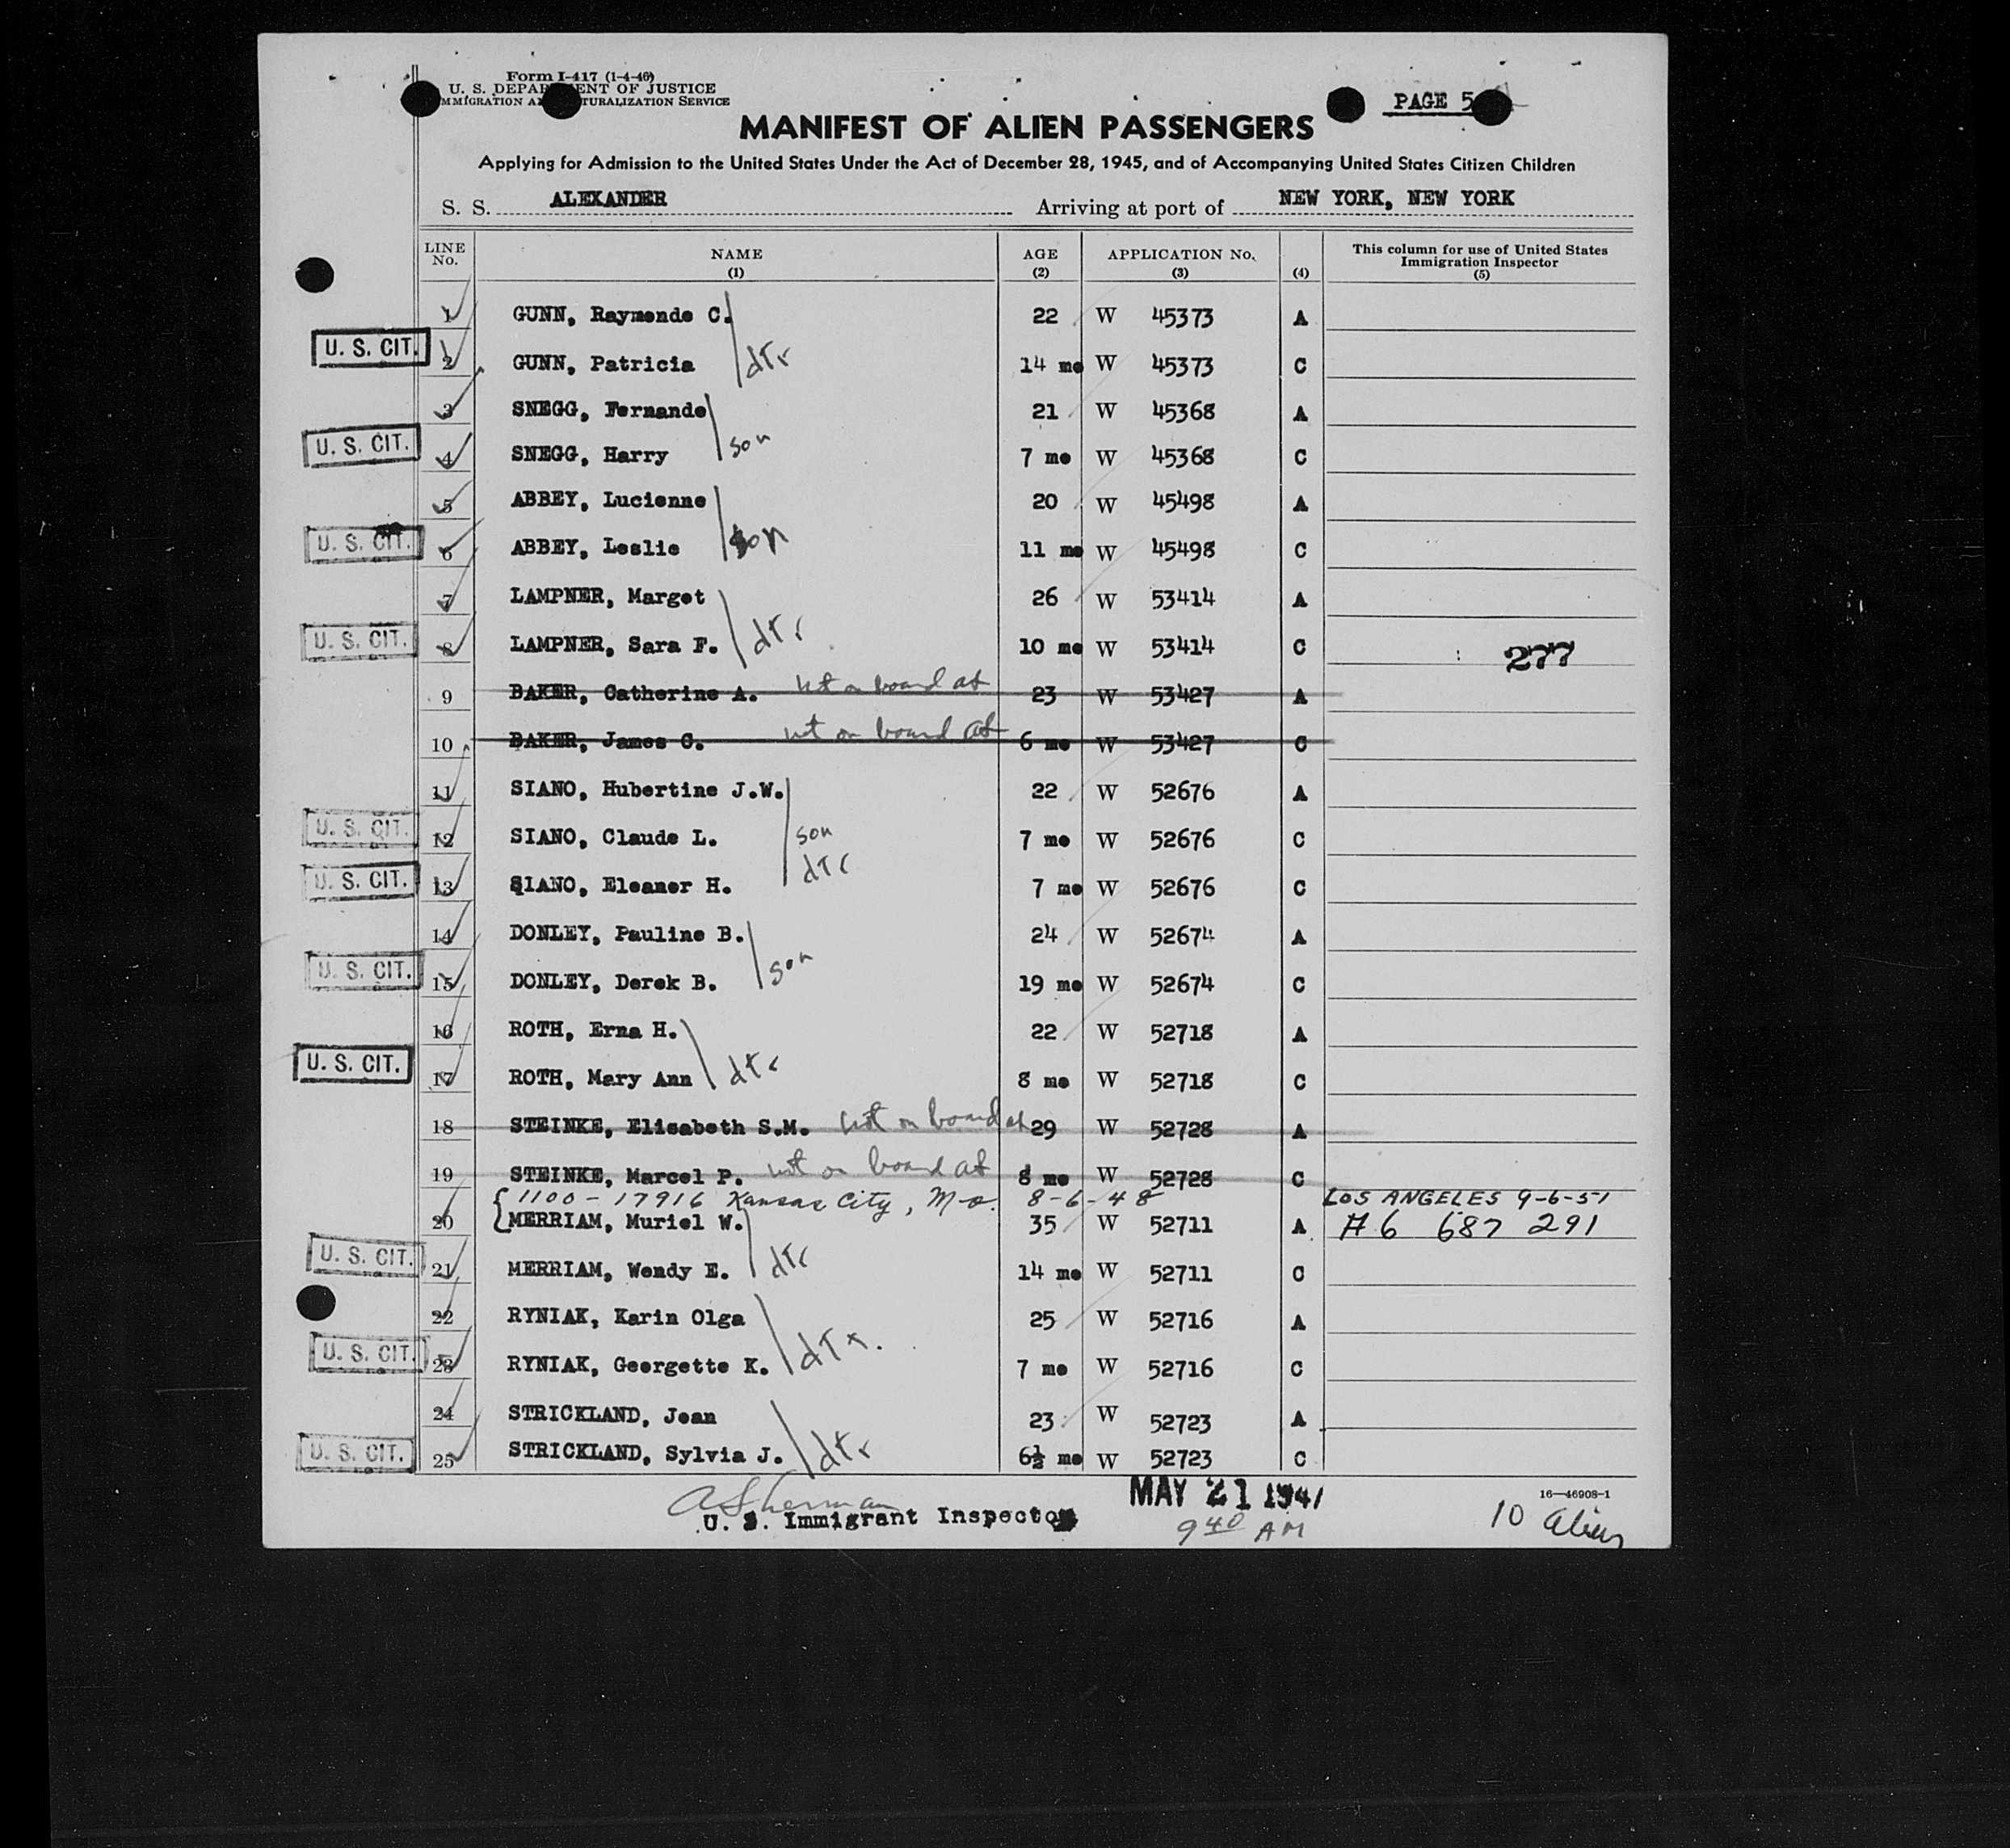 Form I-417 (1-4-46)
U. S. DEPARTMENT OF JUSTICE
IMMIGRATION AND NATURALIZATION SERVICE
PAGE 5
MANIFEST OF ALIEN PASSENGERS
Applying for Admission to the United States Under the Act of December 28, 1945, and of Accompanying United States Citizen Children
S. S. ALEXANDER Arriving at port of NEW YORK, NEW YORK
LINE No. NAME (1) AGE (2) APPLICATION No. (3) (4) This column for use of United States Immigration Inspector (5)
1 GUNN, Raymonde C. 22 W 45373 A
U. S. CIT. 2 GUNN, Patricia dtr 14 mo W 45373 C
3 SNEGG, Fernande 21 W 45368 A
U. S. CIT. 4 SNEGG, Harry son 7 mo W 45368 C
5 ABBEY, Lucienne 20 W 45498 A
U. S. CIT. 6 ABBEY, Leslie son 11 mo W 45498 C
7 LAMPNER, Margot 26 W 53414 A
U. S. CIT. 8 LAMPNER, Sara F. dtr 10 mo W 53414 C 277
9 BAKER, Catherine A. not on board at 23 W 53427 A
10 BAKER, James C. not on board at 6 mo W 53427 C
11 SIANO, Hubertine J.W. 22 W 52676 A
U. S. CIT. 12 SIANO, Claude L. son 7 mo W 52676 C
U. S. CIT. 13 SIANO, Eleanor H. dtr 7 mo W 52676 C
14 DONLEY, Pauline B. 24 W 52674 A
U. S. CIT. 15 DONLEY, Derek B. son 19 mo W 52674 C
16 ROTH, Erna H. 22 W 52718 A
U. S. CIT. 17 ROTH, Mary Ann dtr 8 mo W 52718 C
18 STEINKE, Elisabeth S.M. not on board at 29 W 52728 A
19 STEINKE, Marcel P. not on board at 8 mo W 52728 C
1100-17916 Kansas City, Mo. 8-6-48 LOS ANGELES 9-6-51
20 MERRIAM, Muriel W. 35 W 52711 A A6 687 291
U. S. CIT. 21 MERRIAM, Wendy E. dtr 14 mo W 52711 C
22 RYNIAK, Karin Olga 25 W 52716 A
U. S. CIT. 23 RYNIAK, Georgette K. dtr. 7 mo W 52716 C
24 STRICKLAND, Jean 23 W 52723 A
U. S. CIT. 25 STRICKLAND, Sylvia J. dtr 6½ mo W 52723 C
A Sherman MAY 21 1947 16—46908-1
U. S. Immigrant Inspector 9 40 AM 10 aliens